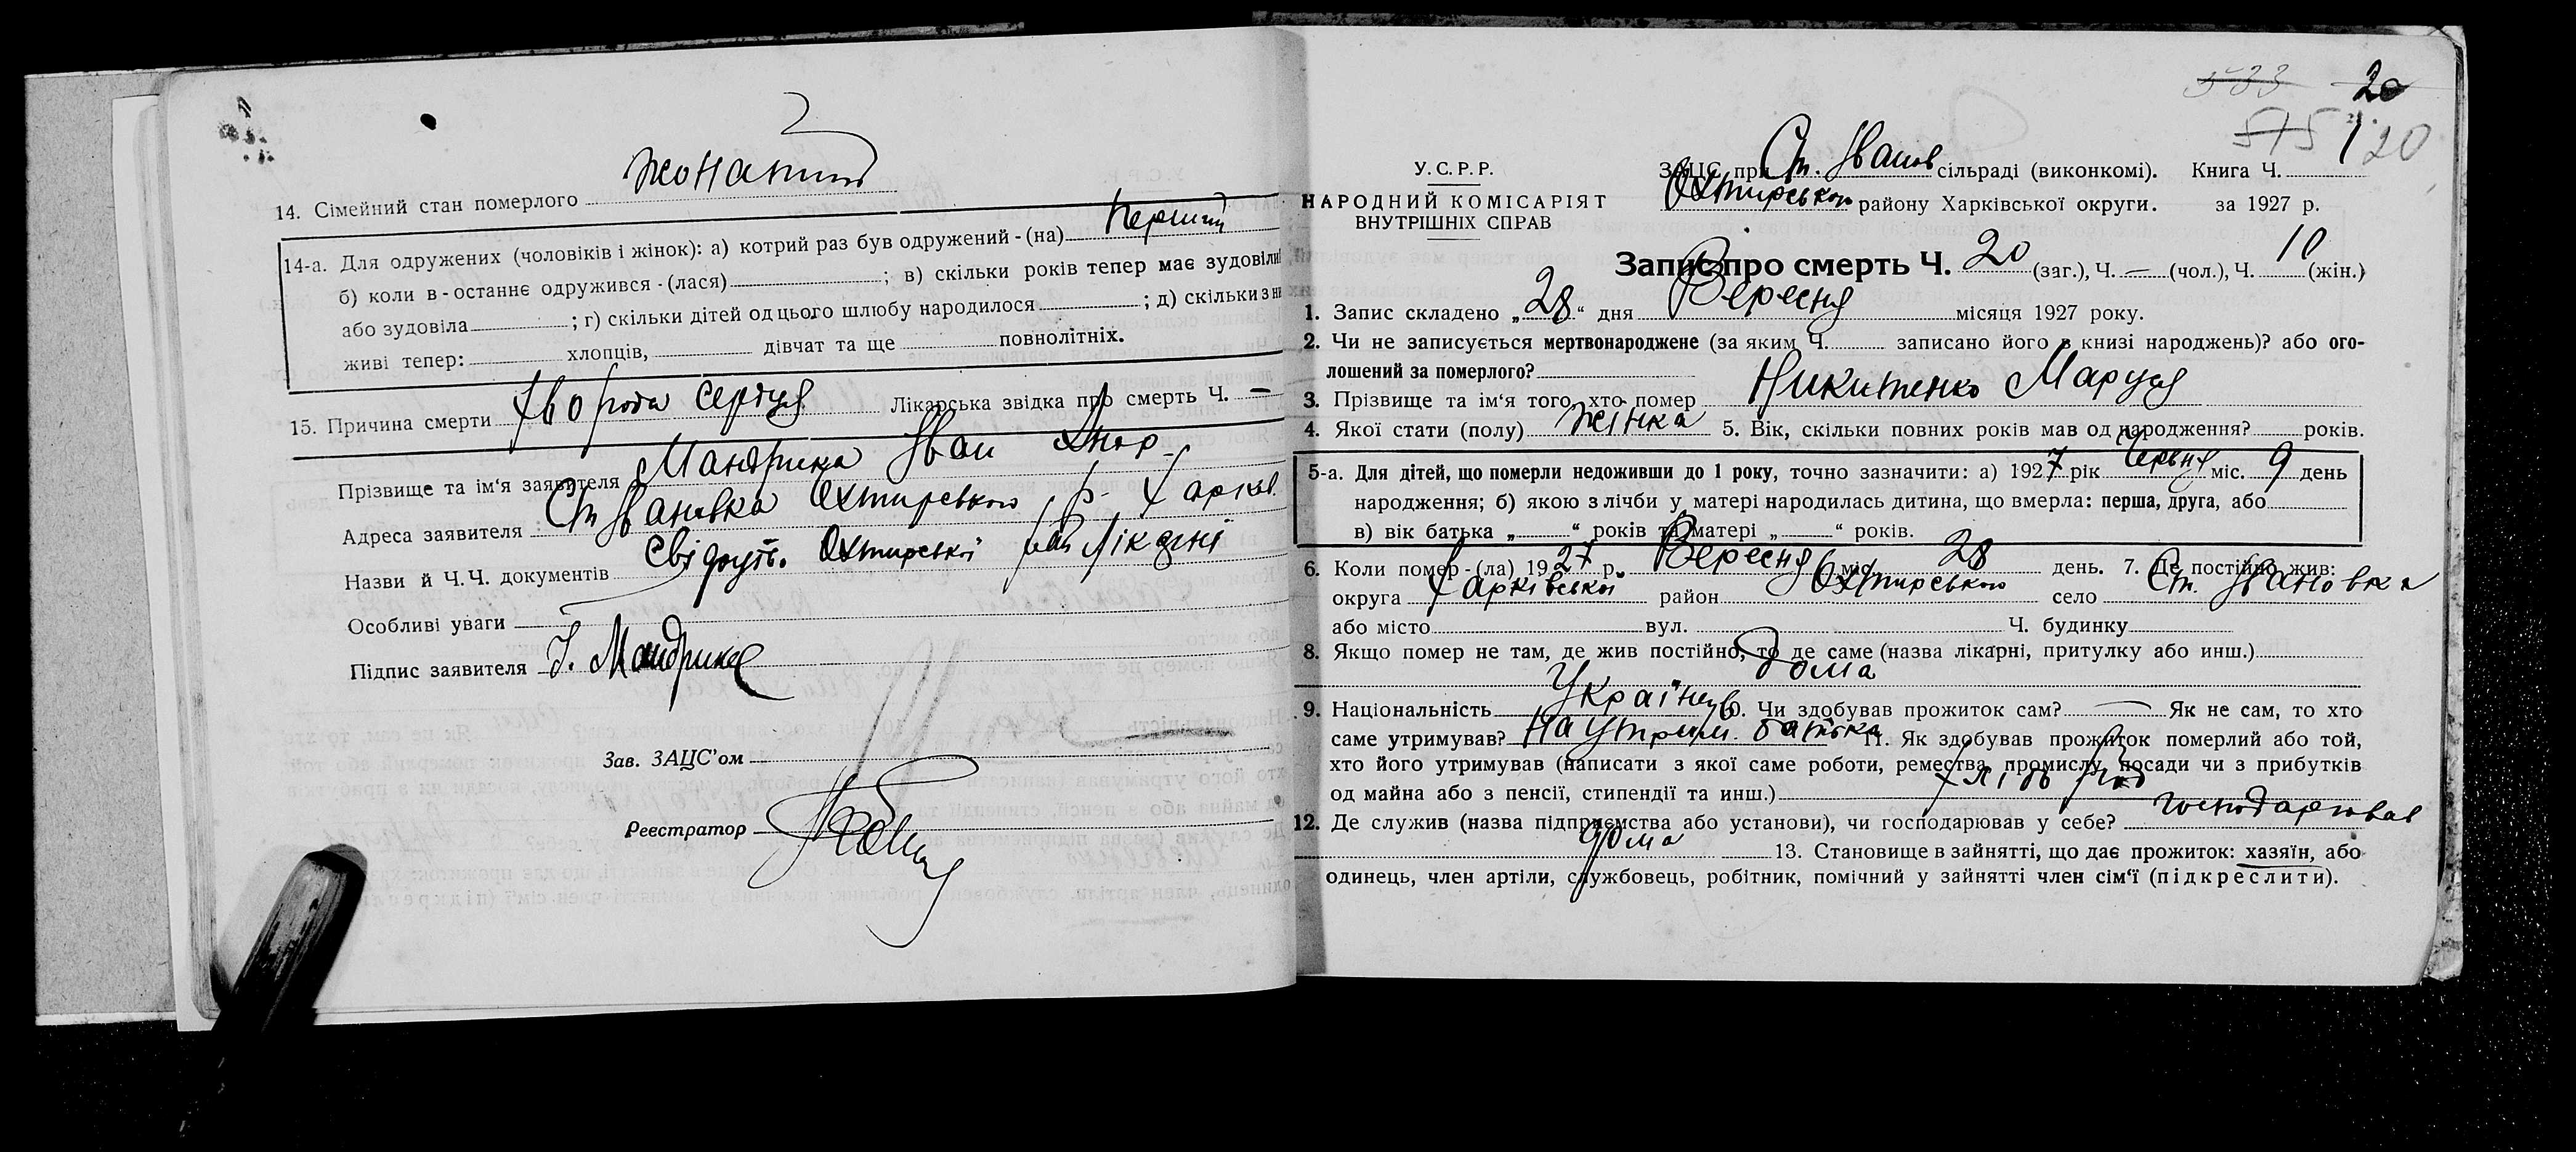 14. Сімейний стан померлого Жонатий
14-а. Для одружених (чоловіків і жінок): а) котрий раз був одружений-(на) Перший
б) коли в-останнє одружився-(лася) ; в) скільки років тепер має зудовілий
або зудовіла ; г) скільки дітей од цього шлюбу народилося ; д) скільки з н
живі тепер: хлопців, дівчат та ще повнолітніх.
15. Причина смерти Хвороба серіця Лікарська звідка про смерть Ч. —
Прізвище та ім'я заявителя Мандрика Іван
Адреса заявителя Ст Івановка Охтирського р. Харків.
Назви й Ч.Ч. документів Свідоцтв. Охтирської рай Лікарні
Особливі уваги
Підпис заявителя І. Мандрика
Зав. ЗАЦС'ом
Реєстратор
533 20
575 20
У.С.Р.Р.
НАРОДНИЙ КОМІСАРІЯТ
ВНУТРІШНІХ СПРАВ
ЗАЦС при Ст. Іванов сільраді (виконкомі). Книга Ч. 1
Охтирського району Харківської округи. за 1927 р.
Запис про смерть Ч. 20 (заг.), Ч. — (чол.), Ч. 10 (жін.)
1. Запис складено „28" дня Вересня місяця 1927 року.
2. Чи не записується мертвонароджене (за яким Ч. записано його в книзі народжень)? або ого-
лошений за померлого?
3. Прізвище та ім'я того, хто помер Никитенко Маруся
4. Якої стати (полу) Жінка 5. Вік, скільки повних років мав од народження? років.
5-а. Для дітей, що померли недоживши до 1 року, точно зазначити: а) 1927 рік Червня міс. 9 день
народження; б) якою з лічби у матері народилась дитина, що вмерла: перша, друга, або
в) вік батька „ " років та матері „ " років.
6. Коли помер-(ла) 1927 р. Вересня міс. 28 день. 7. Де постійно жив:
округа Харківської район Охтирського село Ст. Івановка
або місто вул. Ч. будинку
8. Якщо помер не там, де жив постійно, то де саме (назва лікарні, притулку або инш.)
Дома
9. Національність Українець 10. Чи здобував прожиток сам? — Як не сам, то хто
саме утримував? На утрим. батька 11. Як здобував прожиток померлий або той,
хто його утримував (написати з якої саме роботи, ремества, промислу, посади чи з прибутків
од майна або з пенсії, стипендії та инш.) хлібороб
12. Де служив (назва підприємства або установи), чи господарював у себе? господарював
дома 13. Становище в зайнятті, що дає прожиток: хазяїн, або
одинець, член артіли, службовець, робітник, помічний у зайнятті член сім'ї (підкреслити).